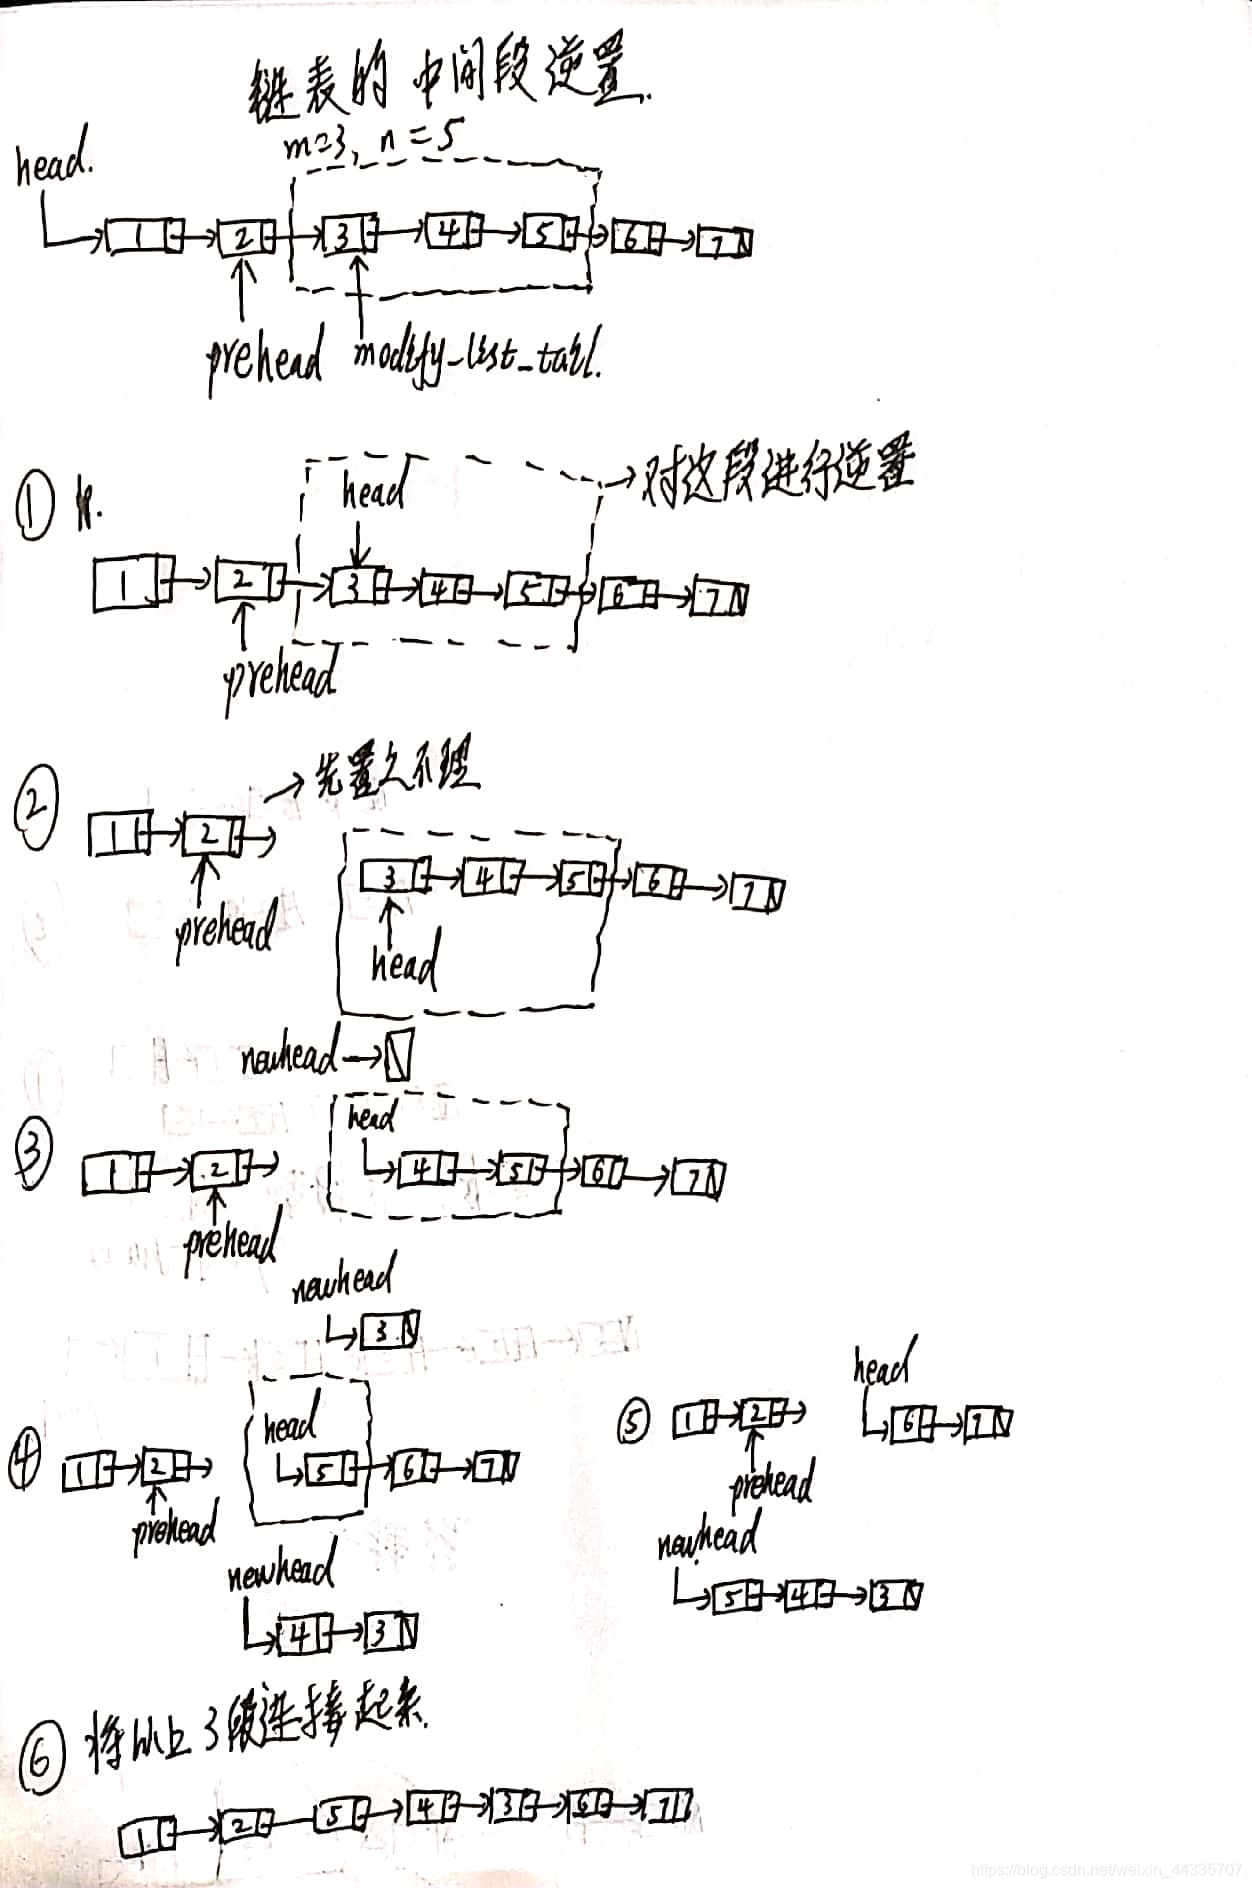 链表的中间段逆置.
m=3, n=5
head.
1 2 3 4 5 6 7 N
prehead modify_list_tail.
① 
→对这段进行逆置
head
1 2 3 4 5 6 7 N
prehead
② →先置之不理
1 2
3 4 5 6 7 N
prehead
head
newhead→ N
③ head
1 2 4 5 6 7 N
prehead
newhead
3 N
④ head
1 2 5 6 7 N
prehead
newhead
4 3 N
⑤ head
1 2 6 7 N
prehead
newhead
5 4 3 N
⑥ 将以上3段连接起来.
1 2 5 4 3 6 7
https://blog.csdn.net/weixin_44335707